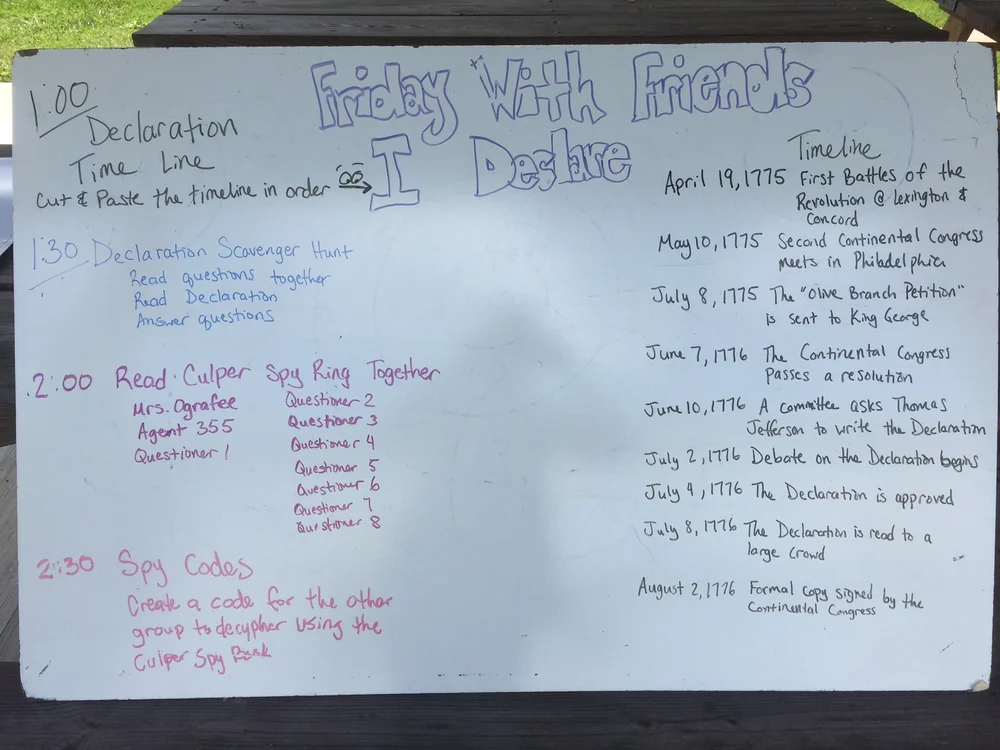 Friday With Friends
I Declare
1:00
Declaration
Time Line
Cut & Paste the timeline in order
1:30 Declaration Scavenger Hunt
Read questions together
Read Declaration
Answer questions
2:00 Read Culper Spy Ring Together
Mrs. Ografee
Agent 355
Questioner 1
Questioner 2
Questioner 3
Questioner 4
Questioner 5
Questioner 6
Questioner 7
Questioner 8
2:30 Spy Codes
Create a code for the other
group to decypher using the
Culper Spy
Timeline
April 19, 1775 First Battles of the
Revolution @ Lexington &
Concord
May 10, 1775 Second Continental Congress
meets in Philadelphia
July 8, 1775 The "Olive Branch Petition"
is sent to King George
June 7, 1776 The Continental Congress
Passes a resolution
June 10, 1776 A committee asks Thomas
Jefferson to write the Declaration
July 2, 1776 Debate on the Declaration begins
July 4, 1776 The Declaration is approved
July 8, 1776 The Declaration is read to a
large crowd
August 2, 1776 Formal copy signed by the
Continental Congress